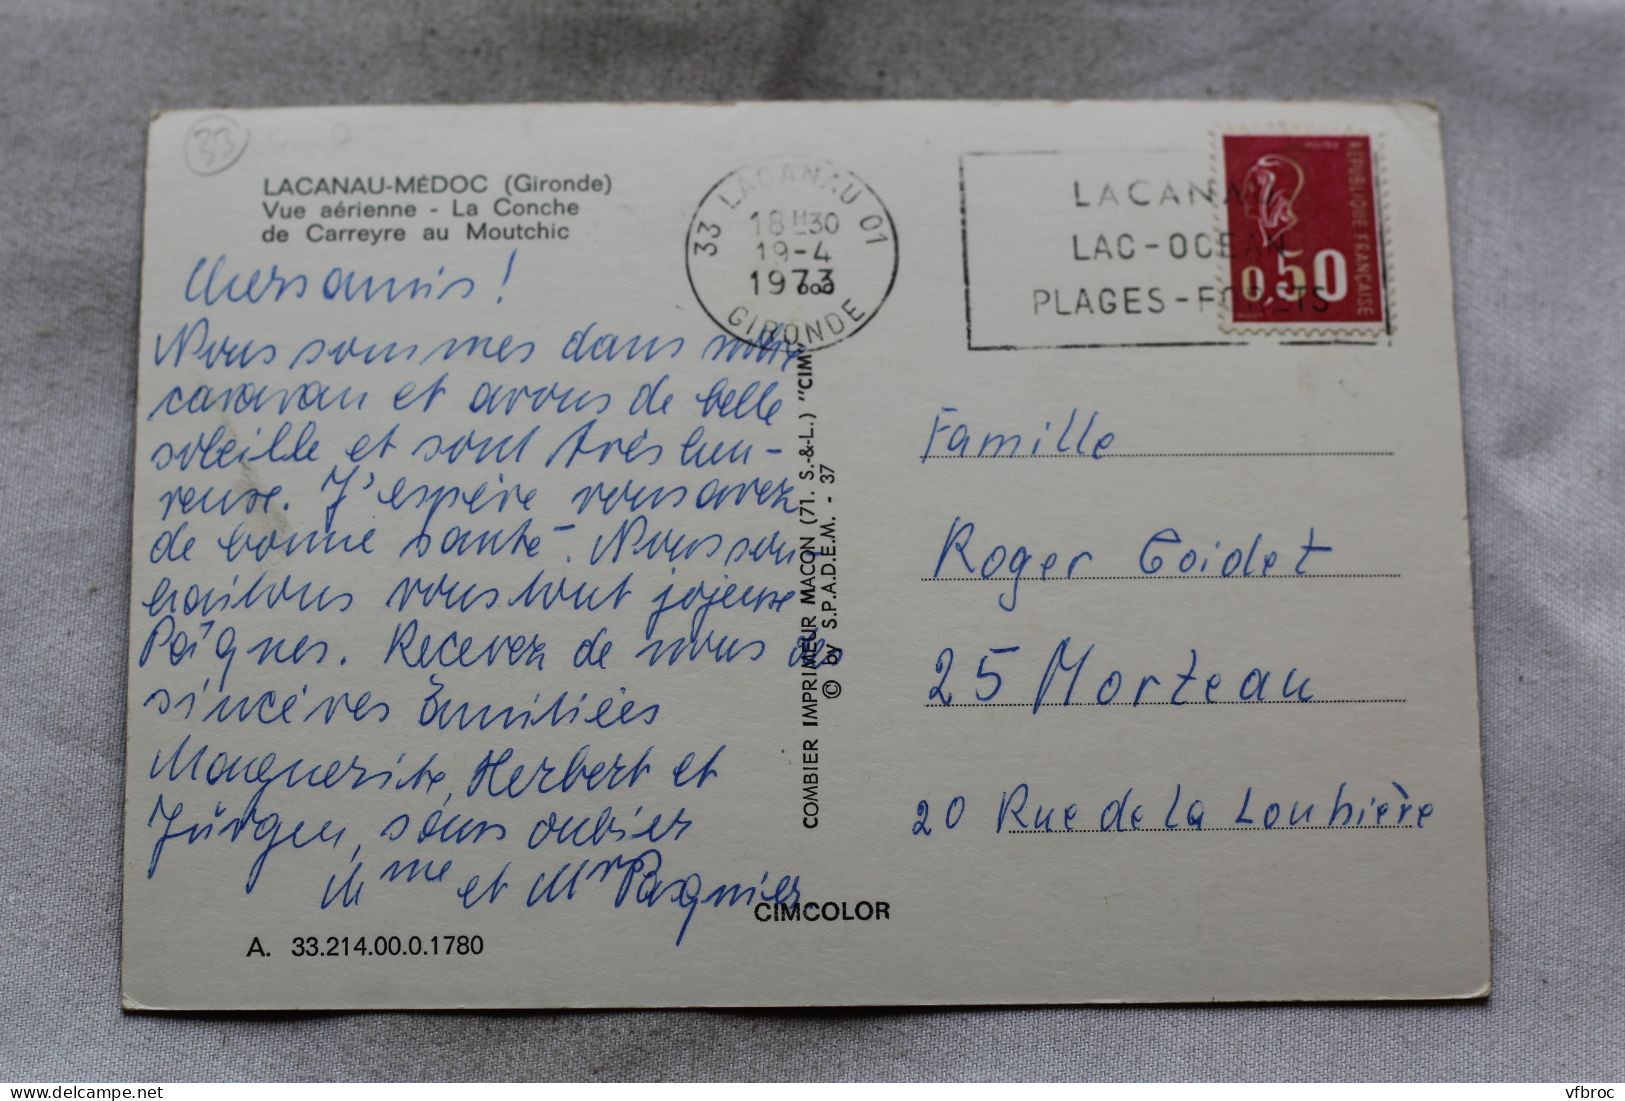 33
LACANAU-MÉDOC (Gironde)
Vue aérienne - La Conche
de Carreyre au Moutchic
Chers amis !
Nous sommes dans notre
caravan et avons de belle
soleille et sont très heu-
reuse. J'espère vous avez
de bonne santé. Nous sou
haitons vous tout joyeuse
Pâques. Recevez de nous des
sincéres
Marguerite, Herbert et
Jürgen, sans oublier
Mme et Mr Pagnier.
A. 33.214.00.0.1780
CIMCOLOR
COMBIER IMPRIMEUR MACON (71. S.-&-L.) "CIM
© by S.P.A.D.E.M. - 37
33 LACANAU 01
18 H 30
19-4
1973
GIRONDE
LACANAU
LAC-OCEAN
PLAGES-FORETS
REPUBLIQUE FRANÇAISE
0,50
Famille
Roger Coidet
25 Morteau
20 Rue de La Louhière
vfbroc